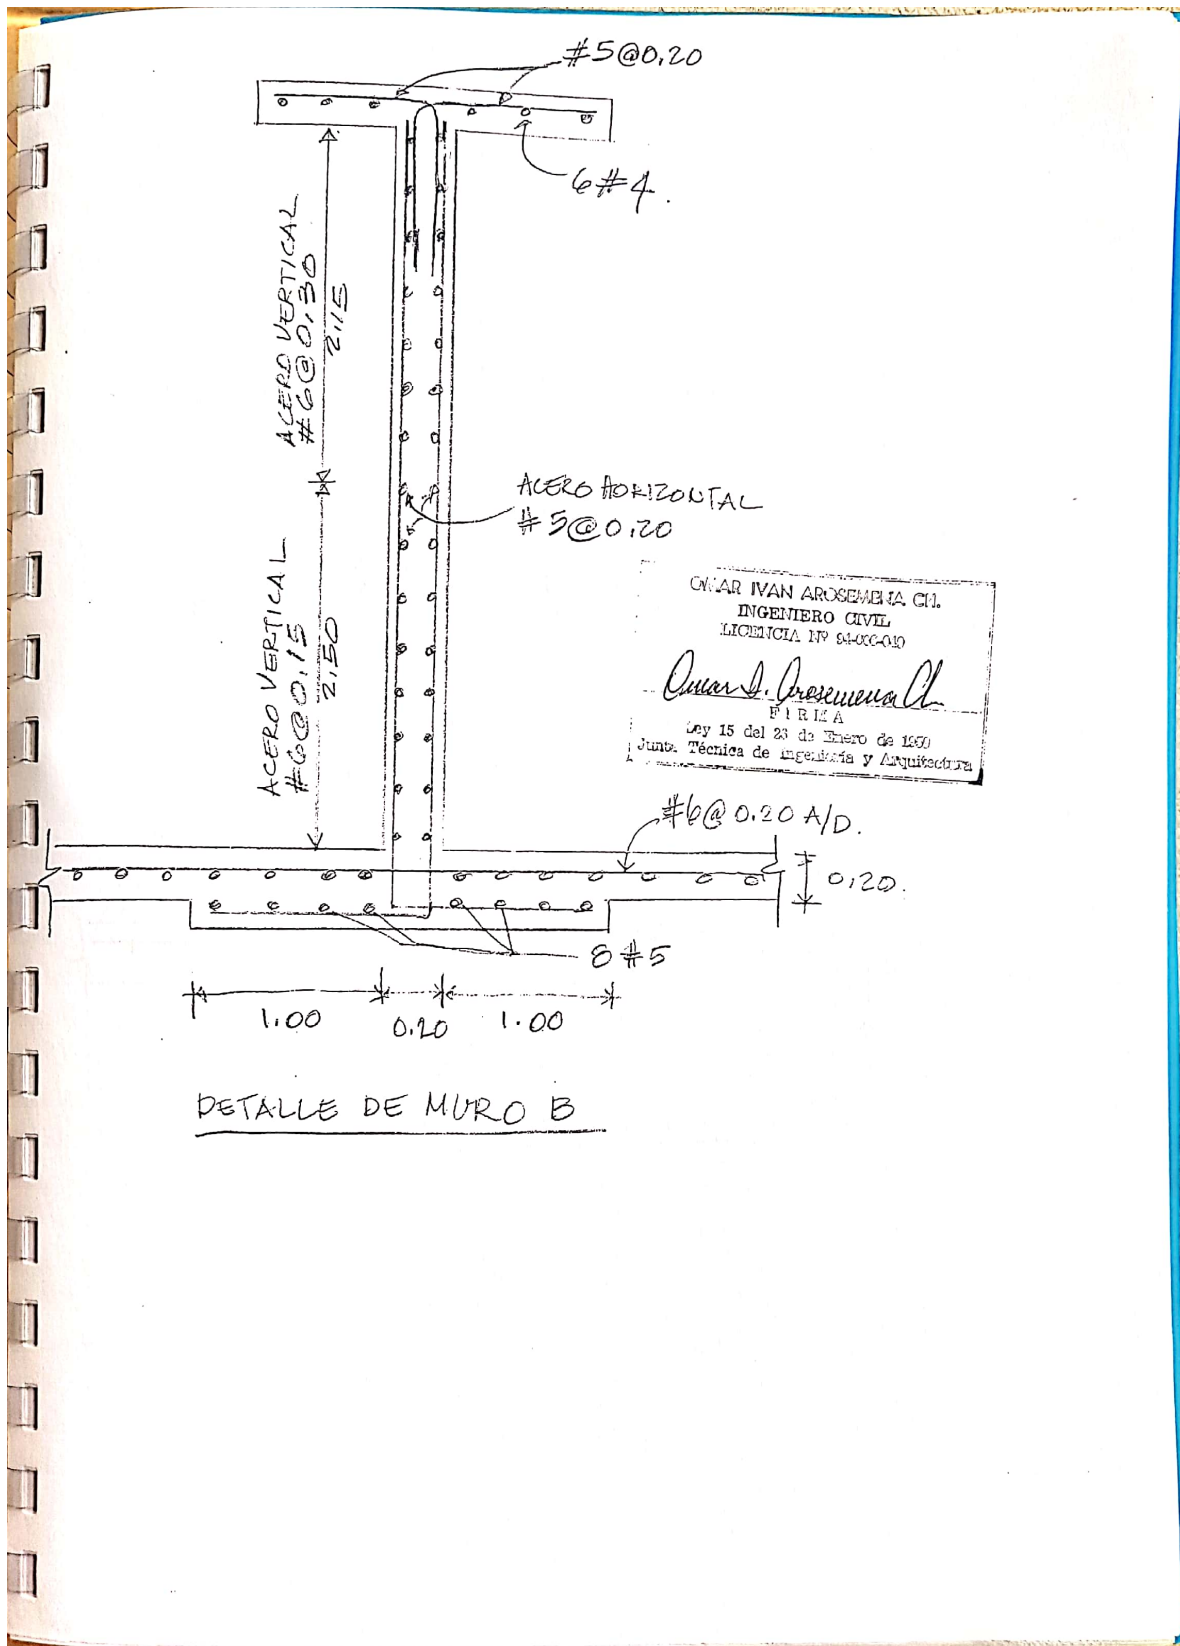 #5@0.20
6#4.
ACERO VERTICAL
#6@0.30
2.15
ACERO HORIZONTAL
#5@0.20
ACERO VERTICAL
#6@0.15
2.50
OMAR IVAN AROSEMENA CH.
INGENIERO CIVIL
LICENCIA Nº
Omar I. Arosemena Ch.
FIRMA
Ley 15 del 23 de Enero de
Junta Técnica de Ingeniería y Arquitectura
#6@0.20 A/D.
0.20.
8#5
1.00
0.20
1.00
DETALLE DE MURO B